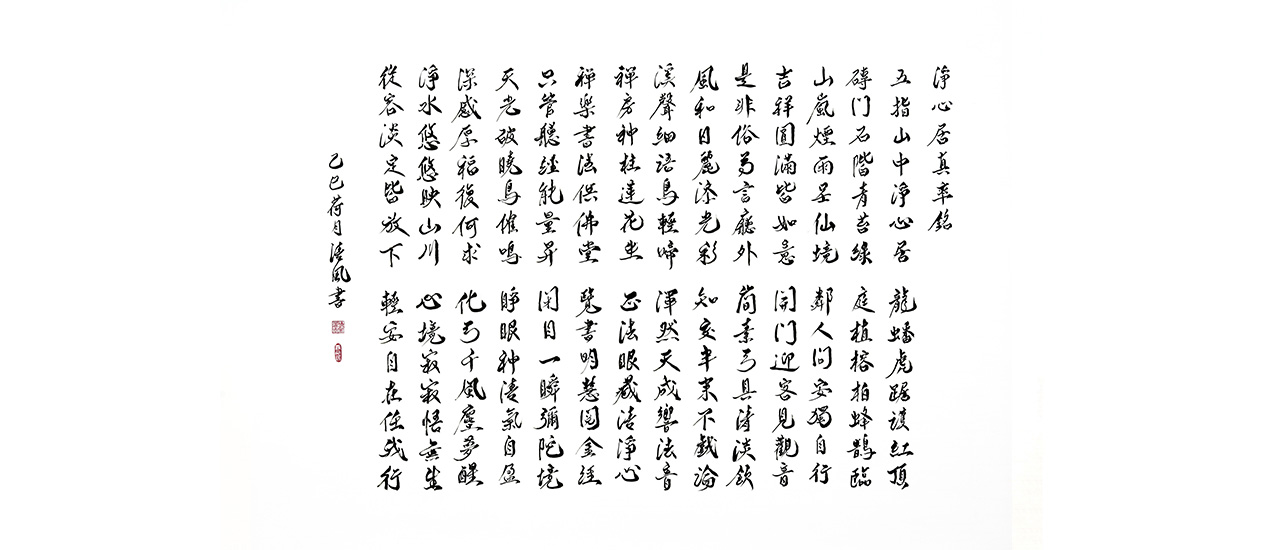 淨心居真率銘
五指山中淨心居 龍蟠虎踞護紅頂
磚門石階青苔綠 庭植榕柏蜂鵲臨
山嵐煙雨是仙境 鄰人問安獨自行
吉祥圓滿皆如意 開門迎客見觀音
是非俗務言廳外 簡素弓具清淡飲
風和日麗添光彩 知交半束不戲論
溪聲細語鳥輕啼 渾然天成響法音
禪房种桂蓮花坐 正法眼藏清淨心
禅樂書法供佛堂 覽書明慧图金經
只管聽經能量昇 闭目一瞬彌陀境
天光破曉鳥催鳴 睜眼神清氣自盈
深感厚福復何求 化弓千風塵夢醒
淨水悠悠映山川 心境寂寂悟無生
從容淡定皆放下 輕安自在任我行
己巳荷月清風書